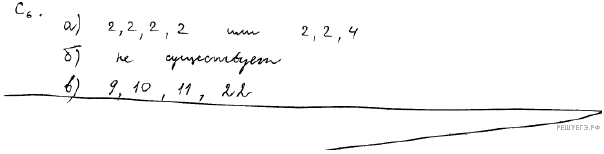 С6.
а) 2, 2, 2, 2 или 2, 2, 4
б) не существует
в) 9, 10, 11, 22
РЕШУЕГЭ.РФ